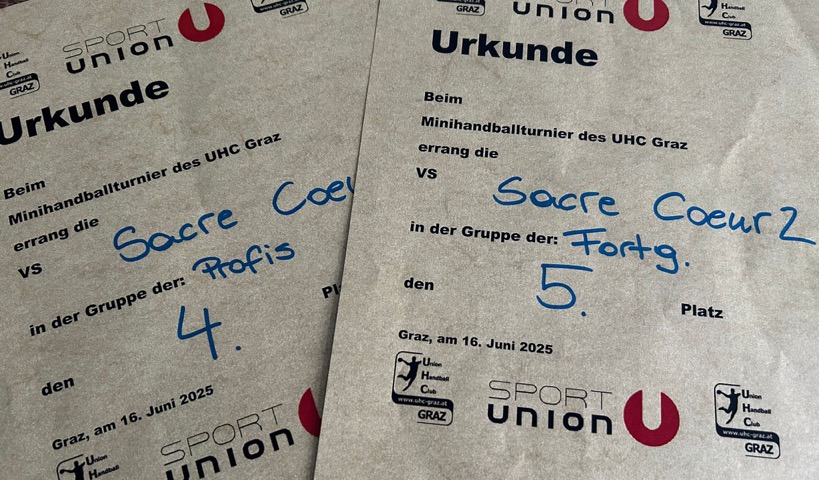 SPORT
UNION
GRAZ
Union
Handball
Club
www.uhc-graz.at
GRAZ
Urkunde
Beim
Minihandballturnier des UHC Graz
errang die
VS Sacre Coeu
in der Gruppe der: Profis
den 4.
Graz, am 16. Juni 2025
Union
Handball
SPORT
UNION
GRAZ
UNION
www.uhc-graz.at
GRAZ
Urkunde
Beim
Minihandballturnier des UHC Graz
errang die
VS Sacre Coeur 2
in der Gruppe der: Fortg.
den 5. Platz
Graz, am 16. Juni 2025
Union
Handball
Club
www.uhc-graz.at
GRAZ
SPORT
UNION
Union
Handball
Club
www.uhc-graz.at
GRAZ